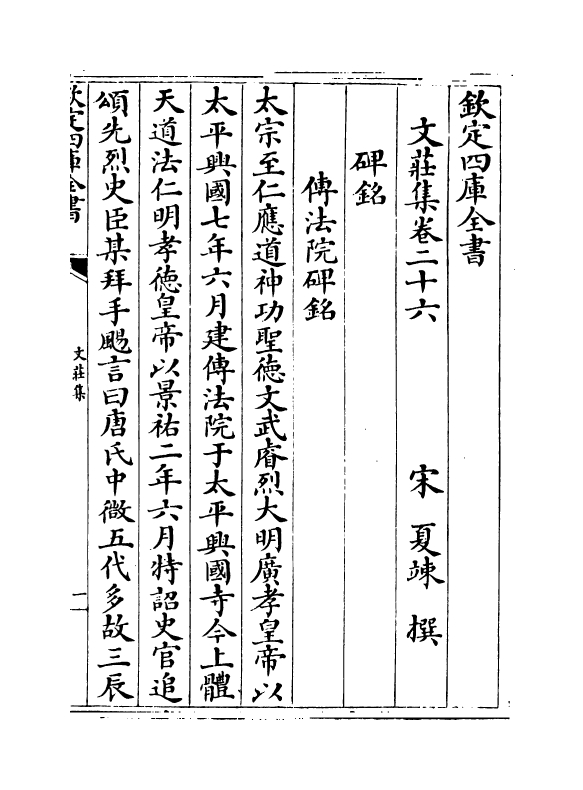 欽定四庫全書
文莊集卷二十六
宋 夏竦 撰
碑銘
傳法院碑銘
太宗至仁應道神功聖德文武睿烈大明廣孝皇帝以
太平興國七年六月建傳法院于太平興國寺今上體
天道法仁明孝德皇帝以景祐二年六月特詔史官追
頌先烈史臣某拜手颺言曰唐氏中微五代多故三辰
欽定四庫全書
文莊集
一